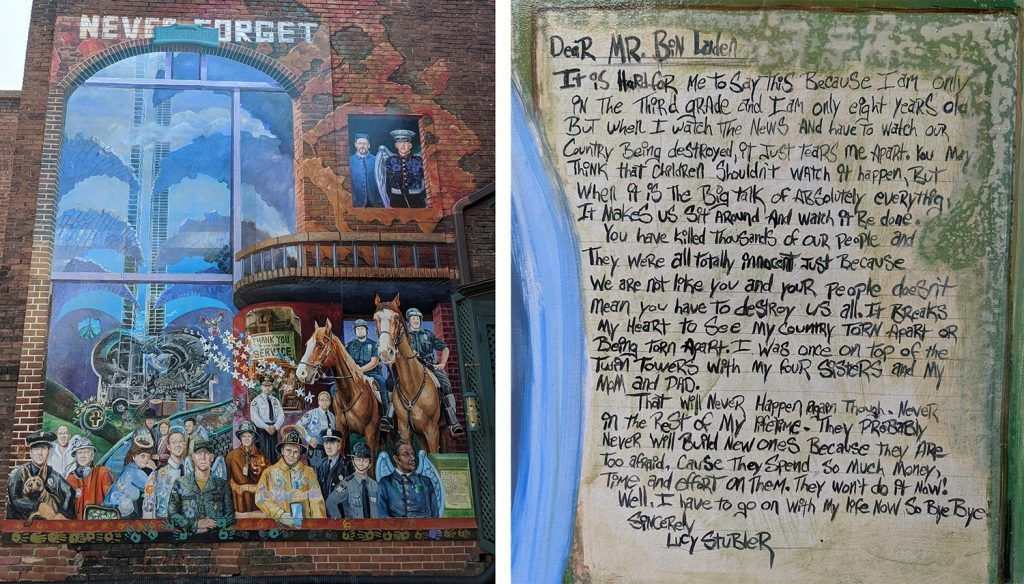 NEVER FORGET
THANK YOU
SERVICE
Dear MR. Bin Laden
It is Hard for Me to Say This Because I am only
in The Third grade and I am only eight years old
But when I watch The News And have to watch our
Country Being destroyed, it Just tears me Apart. You May
Think that Children Shouldn't watch it happen, But
When it is The Big talk of Absolutely everything,
It Makes us Sit Around And watch it Be done.
You have killed Thousands of our People and
They were all totally innocent Just Because
We are not like you and your People doesn't
mean you have to destroy us all. It Breaks
My Heart to See My Country Torn Apart or
Being torn Apart. I was once on top of the
Twin Towers with my four Sisters and My
Mom and Dad.
That will Never Happen again Though. Never
in the Rest of My lifetime. They Probably
Never will Build New ones Because they Are
Too afraid, Cause They Spend so Much Money,
Time, and effort on Them. They won't do it Now!
Well, I have to go on with My life Now So Bye Bye
Sincerely
Lucy Stubler